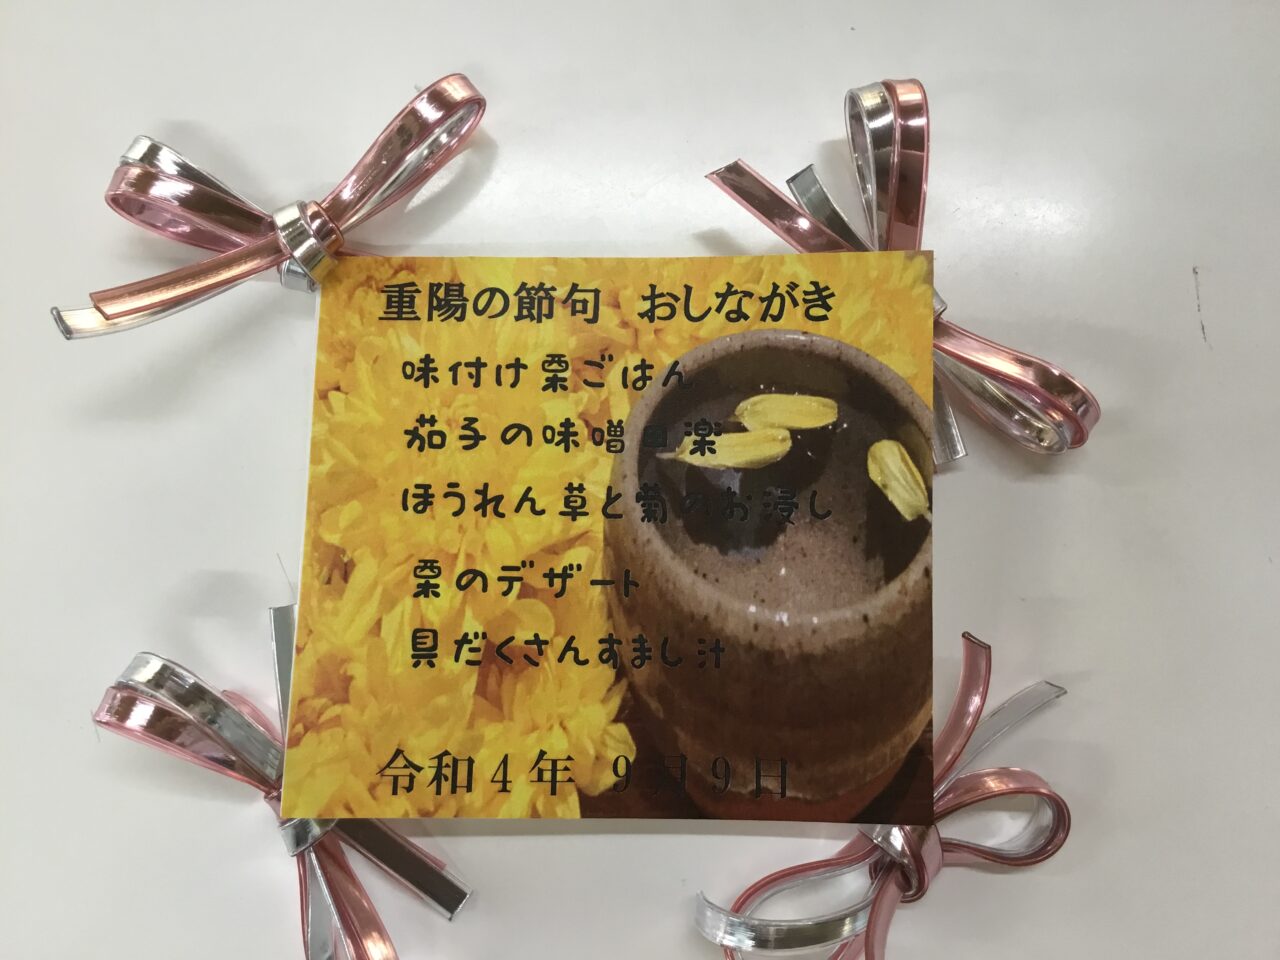 重陽の節句　おしながき
味付け栗ごはん
茄子の味噌田楽
ほうれん草と菊のお浸し
栗のデザート
具だくさんすまし汁
令和４年　９月９日